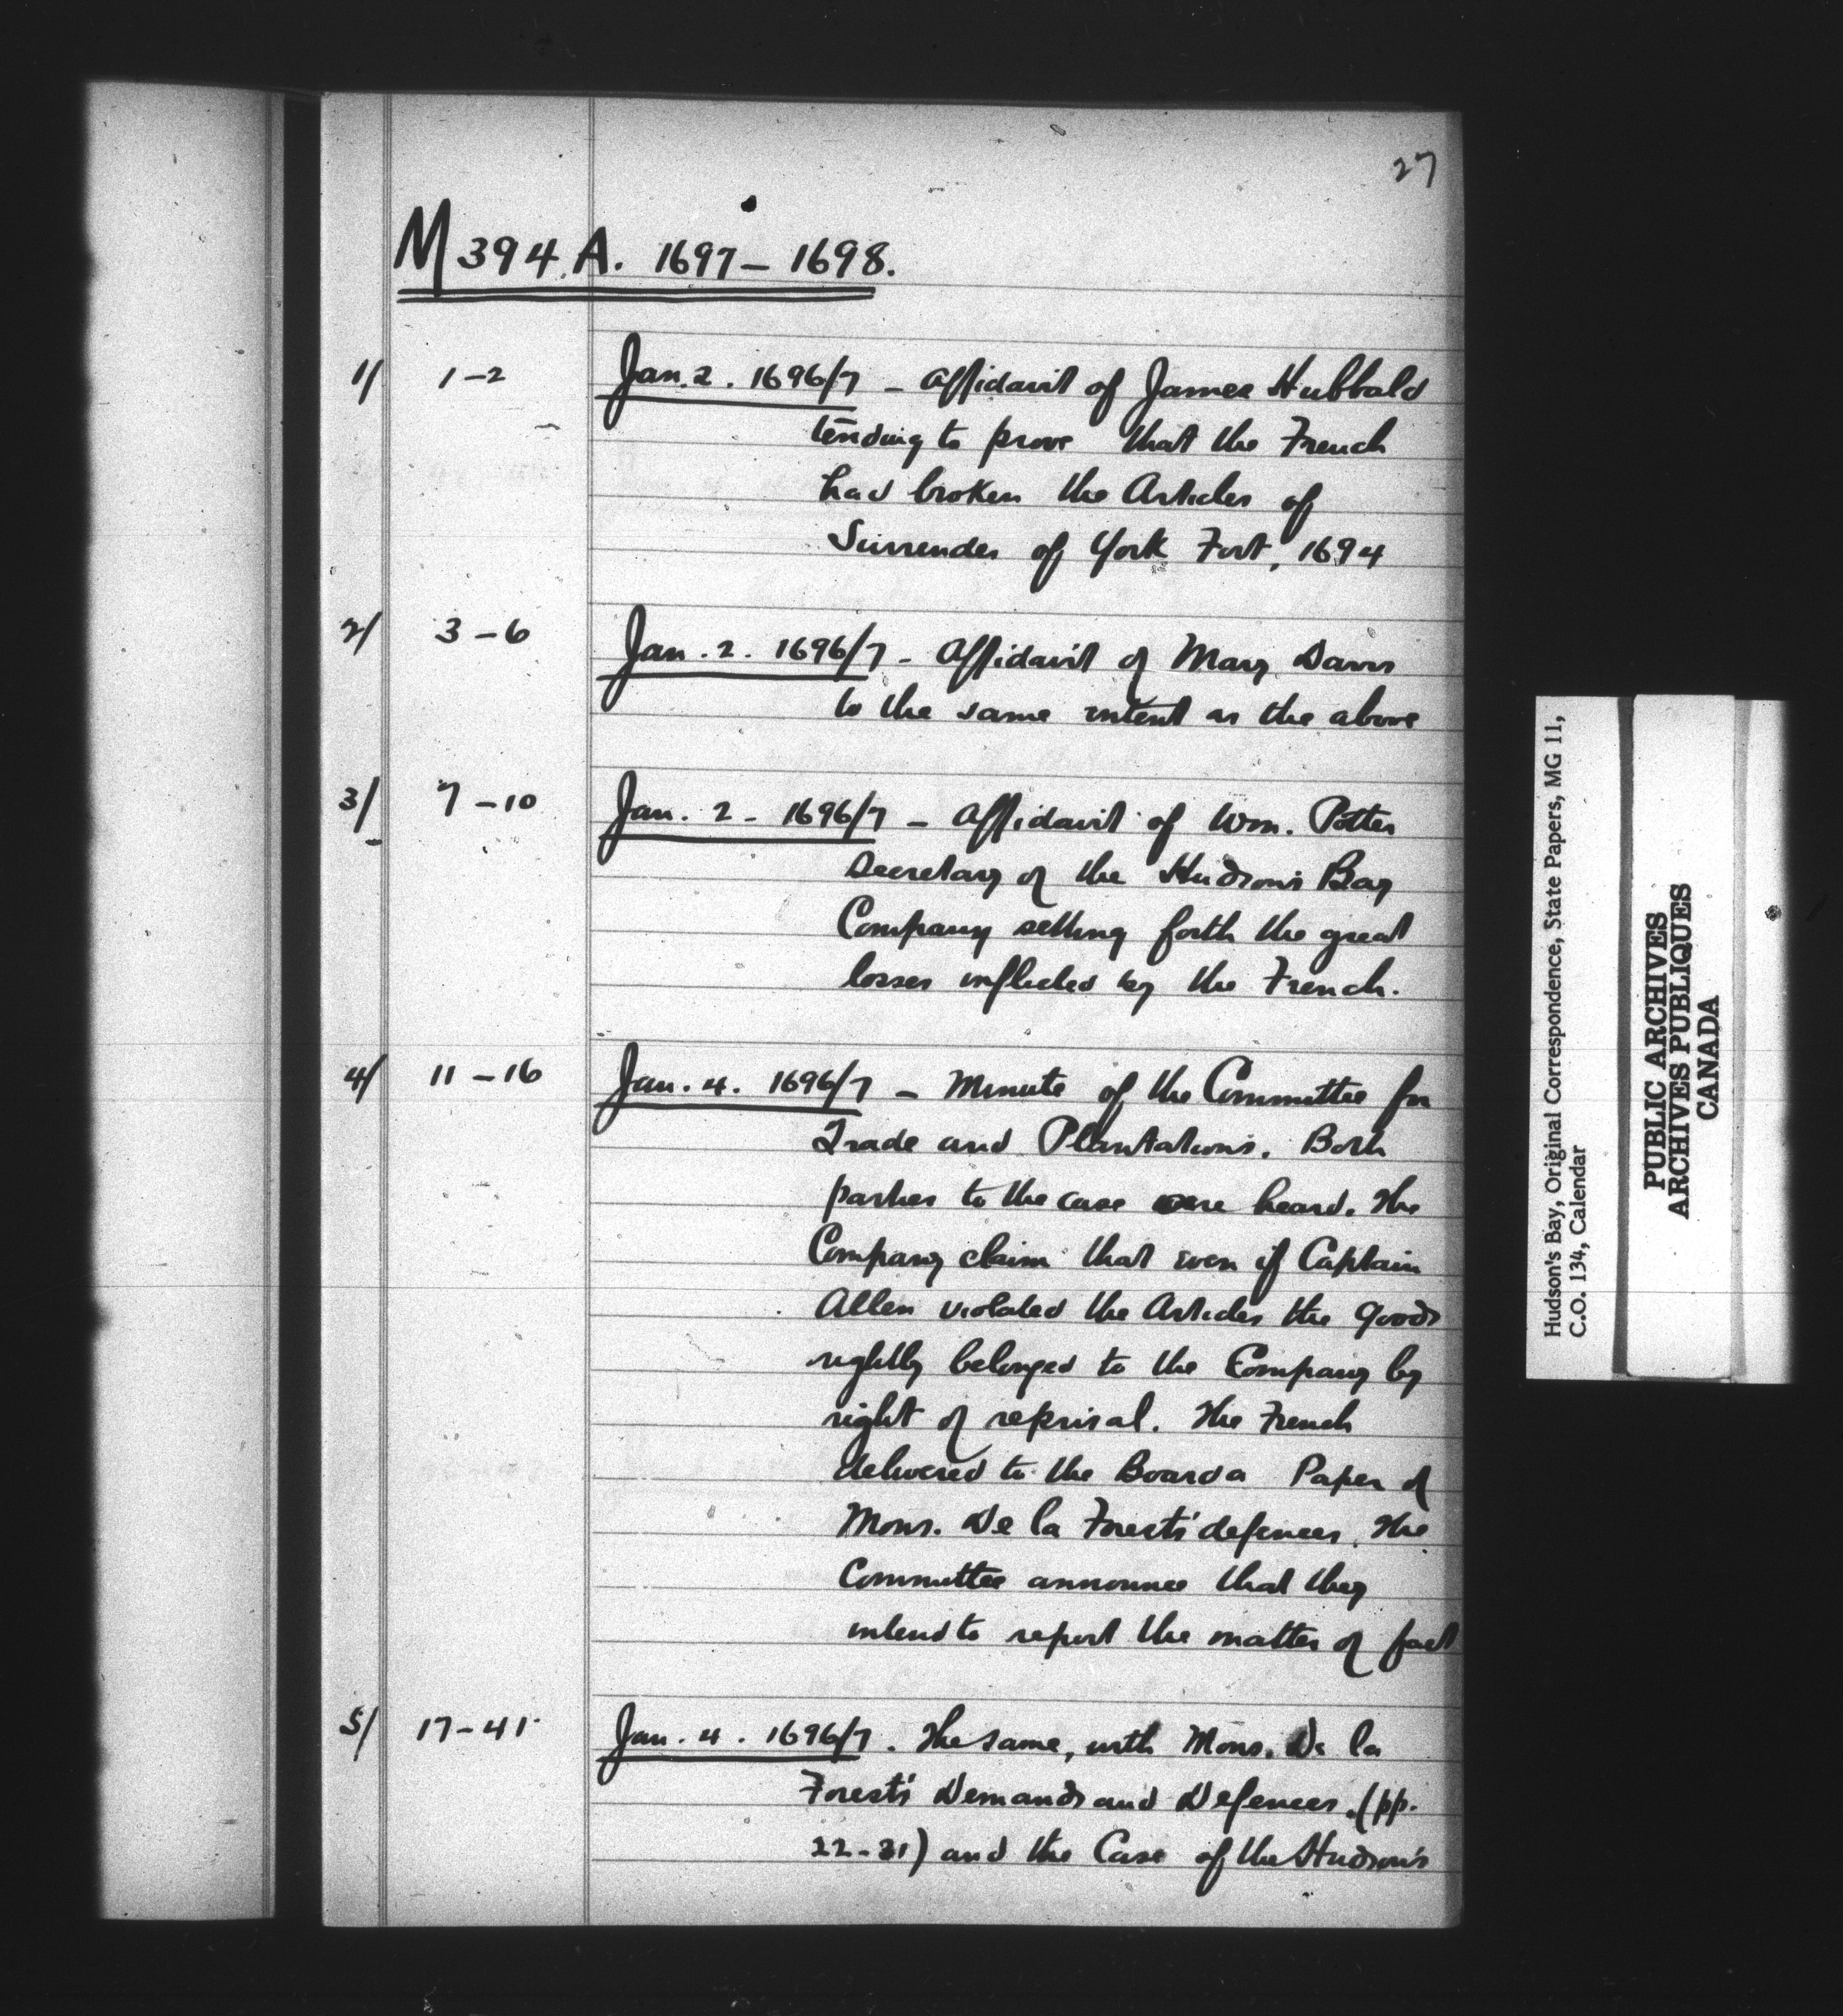 27
M 394.A. 1697 – 1698.
1/ 1 – 2 Jan. 2. 1696/7 – Affidavit of James Hubbald
tending to prove that the French
had broken the Articles of
Surrender of York Fort, 1694
2/ 3 – 6 Jan. 2. 1696/7 – Affidavit of Mary Davis
to the same intent as the above
3/ 7 – 10 Jan. 2 – 1696/7 – Affidavit of Wm. Potter
Secretary of the Hudson's Bay
Company setting forth the great
losses inflicted by the French.
4/ 11 – 16 Jan. 4. 1696/7 – Minute of the Committee for
Trade and Plantations. Both
parties to the case were heard. The
Company claim that even if Captain
Allen violated the Articles the goods
rightly belonged to the Company by
right of reprisal. The French
delivered to the Board a Paper of
Mons. De la Forest's defences. The
Committee announce that they
intend to report the matter of fact
5/ 17 – 41 Jan. 4. 1696/7. The same, with Mons. De la
Forest's Demands and Defences. (pp.
22-31) and the Case of the Hudson's
Hudson's Bay, Original Correspondence, State Papers, MG 11,
C.O. 134, Calendar
PUBLIC ARCHIVES
ARCHIVES PUBLIQUES
CANADA